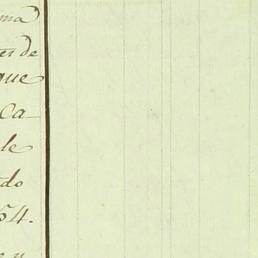 ma
es de
que
ca
le
do
54.